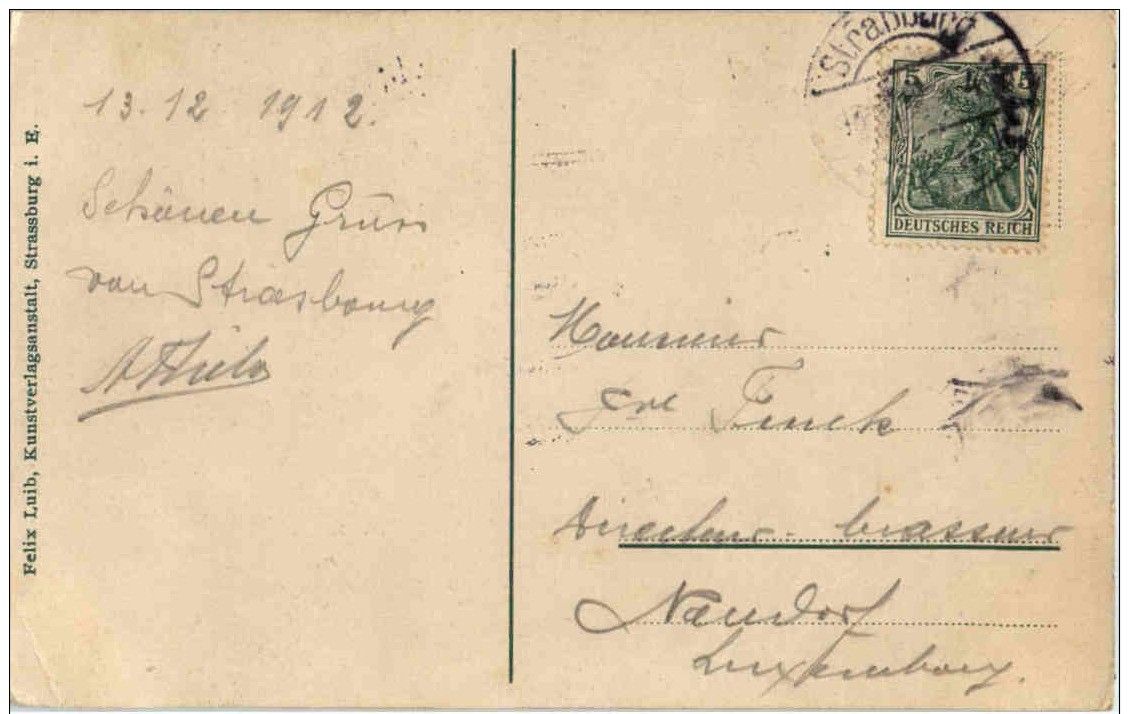 Felix Luib, Kunstverlagsanstalt, Strassburg i. E.
13.12 1912.
Schönen Gruss
von Strasbourg
Straßburg
5 5
DEUTSCHES REICH
Monsieur
Funck
Directeur-brasseur
Neudorf
Luxembourg.